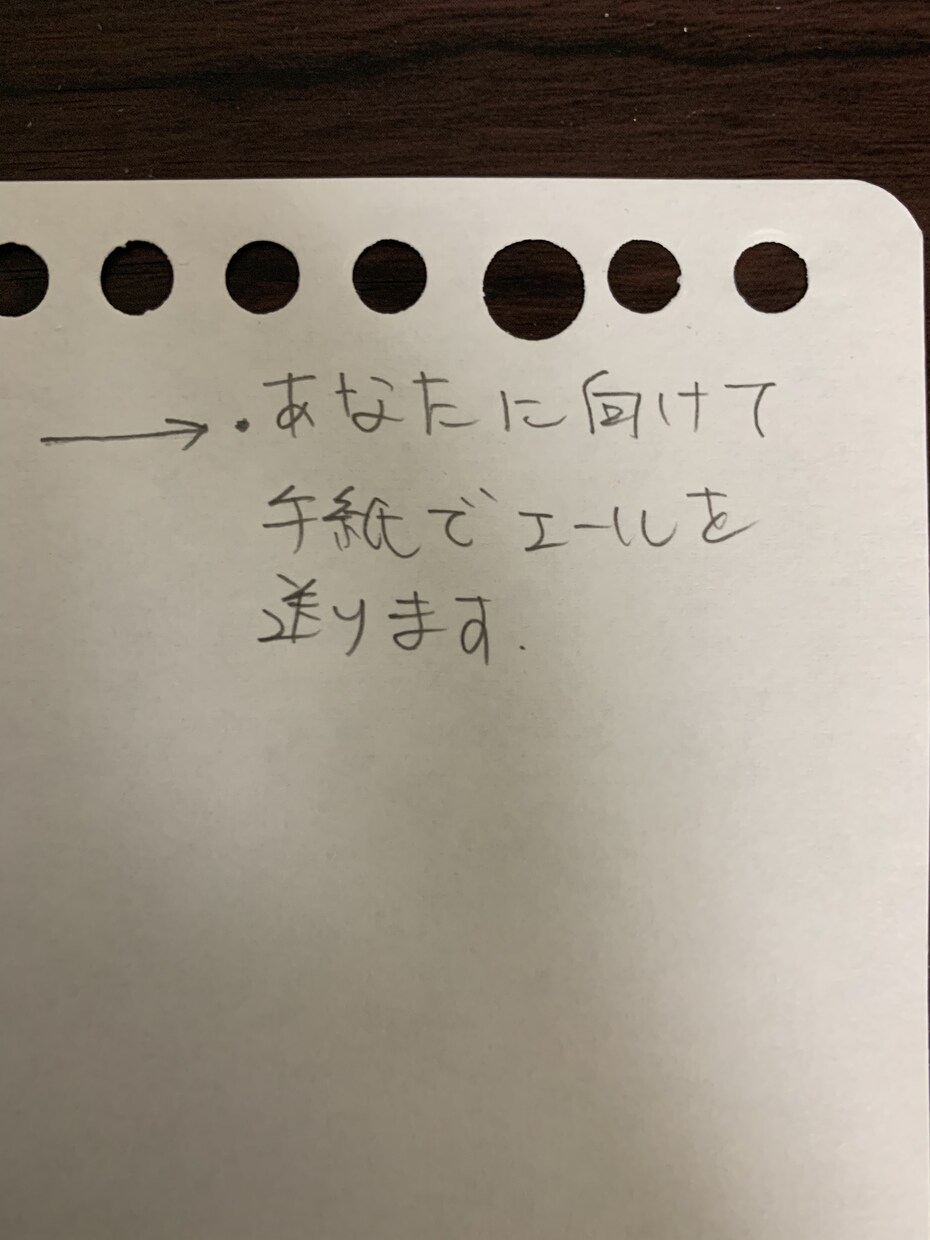 →・あなたに向けて
手紙でエールを
送ります.